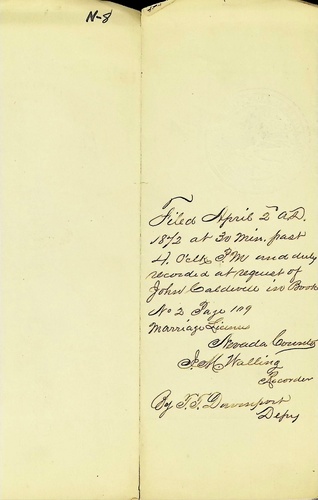 N-8
Filed April 2nd A.D.
1872 at 30 min. past
4 Oclk P.M and duly
recorded at request of
John Caldwell in Book
No 2 Page 109
Marriage Licenses
Nevada County
J. M. Walling
Recorder
By T. T. Davenport
Depy